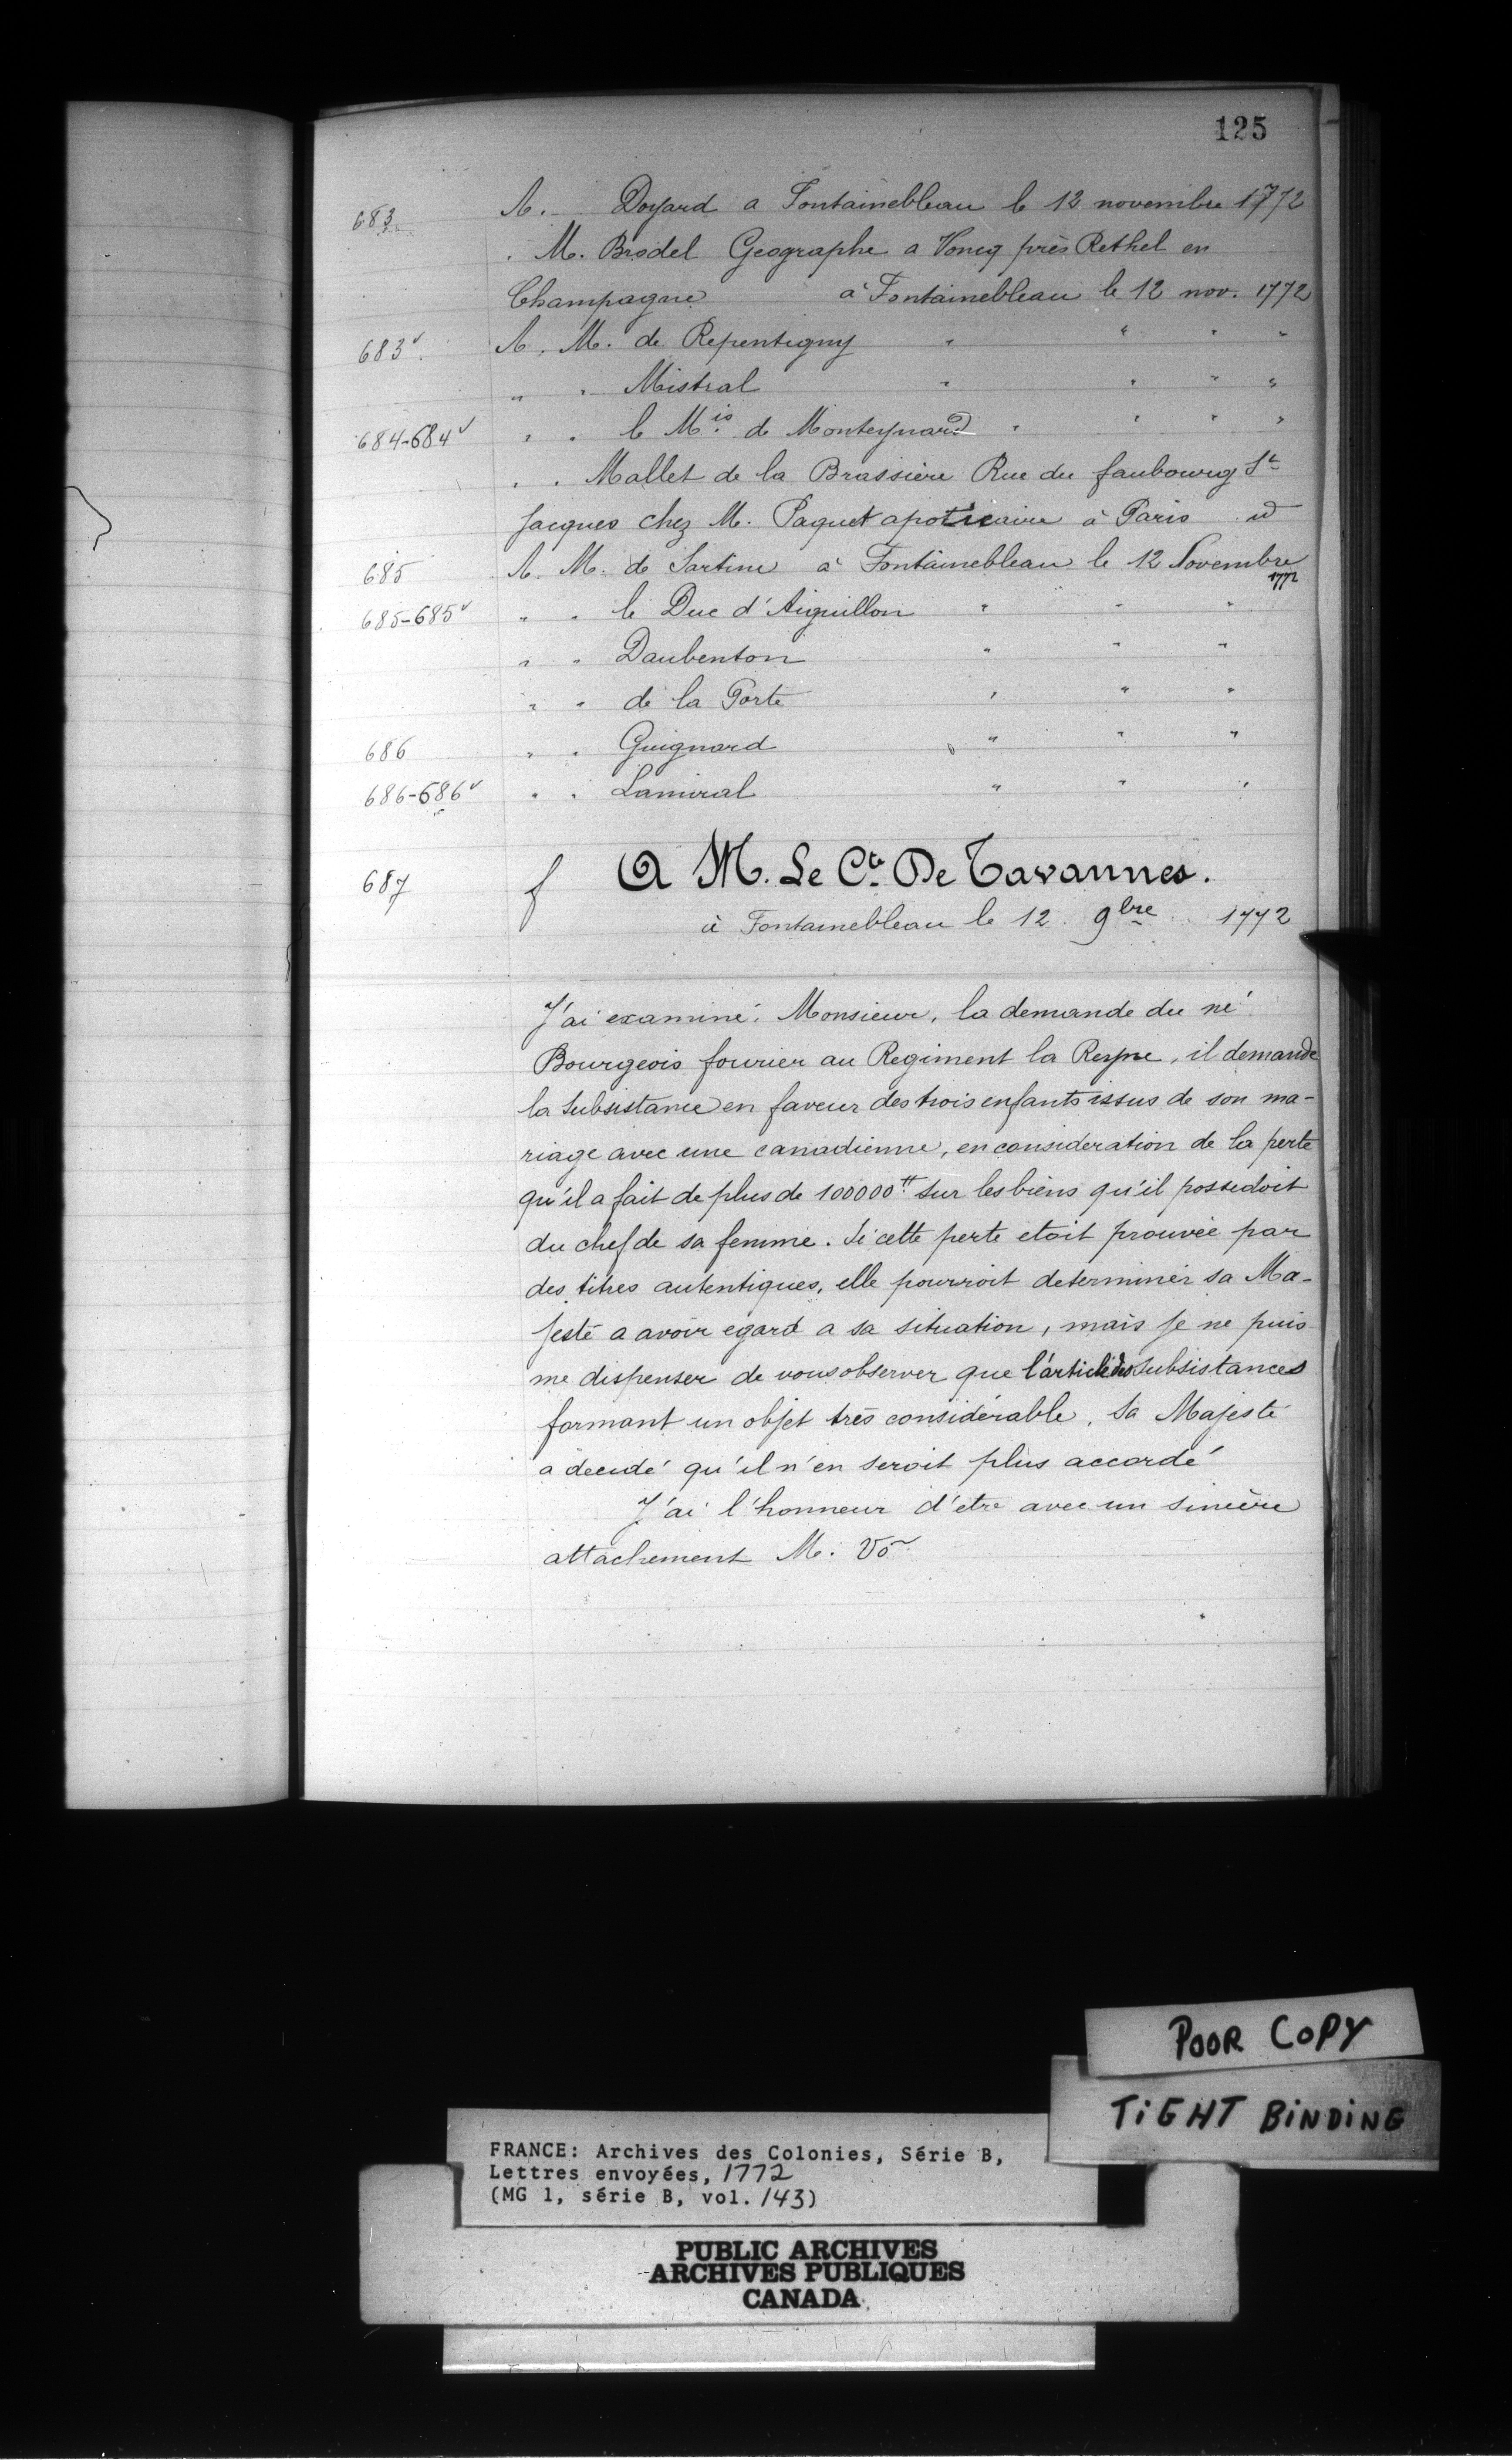 125
683 A. Doyard a Fontainebleau le 12 novembre 1772
. M. Brodel Geographe a Voncq près Rethel en
Champagne à Fontainebleau le 12 nov. 1772
683v. A. M. de Repentigny " " " "
" " Mistral " " " "
684-684v " " le Mis. de Monteynard " " " "
" " Mallet de la Brassière Rue du faubourg St
Jacques chez M. Paquet apoticaire à Paris id
685 A. M. de Sartine à Fontainebleau le 12 Novembre
1772
685-685v " " le Duc d'Aiguillon " " "
" " Daubenton " " "
" " de la Porte " " "
686 " " Guignard " " "
686-686v " " Lamiral " " "
687 f A M. Le Cte. De Tavannes.
à Fontainebleau le 12 9bre 1772
J'ai examiné, Monsieur, la demande du né
Bourgeois fourier au Regiment la Reyne, il demande
la subsistance en faveur des trois enfants issus de son ma-
riage avec une canadienne, en consideration de la perte
qu'il a fait de plus de 100000tt sur les biens qu'il possedoit
du chef de sa femme. Si cette perte etoit prouvée par
des titres autentiques, elle pourroit determiner sa Ma-
jesté a avoir egard a sa situation, mais je ne puis
me dispenser de vous observer que l'article des subsistances
formant un objet très considérable, Sa Majesté
a decidé qu'il n'en seroit plus accordé
J'ai l'honneur d'etre avec un sincère
attachement M. Vo
POOR COPY
TIGHT BINDING
FRANCE: Archives des Colonies, Série B,
Lettres envoyées, 1772
(MG 1, série B, vol. 143)
PUBLIC ARCHIVES
ARCHIVES PUBLIQUES
CANADA